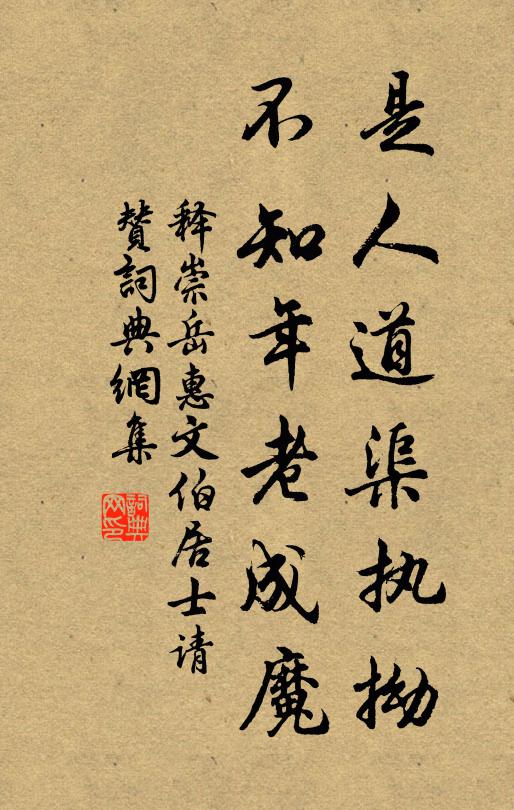 是人道渠执拗
不知年老成魔
释崇岳惠文伯居士请
赞詞典網集
詞典網印